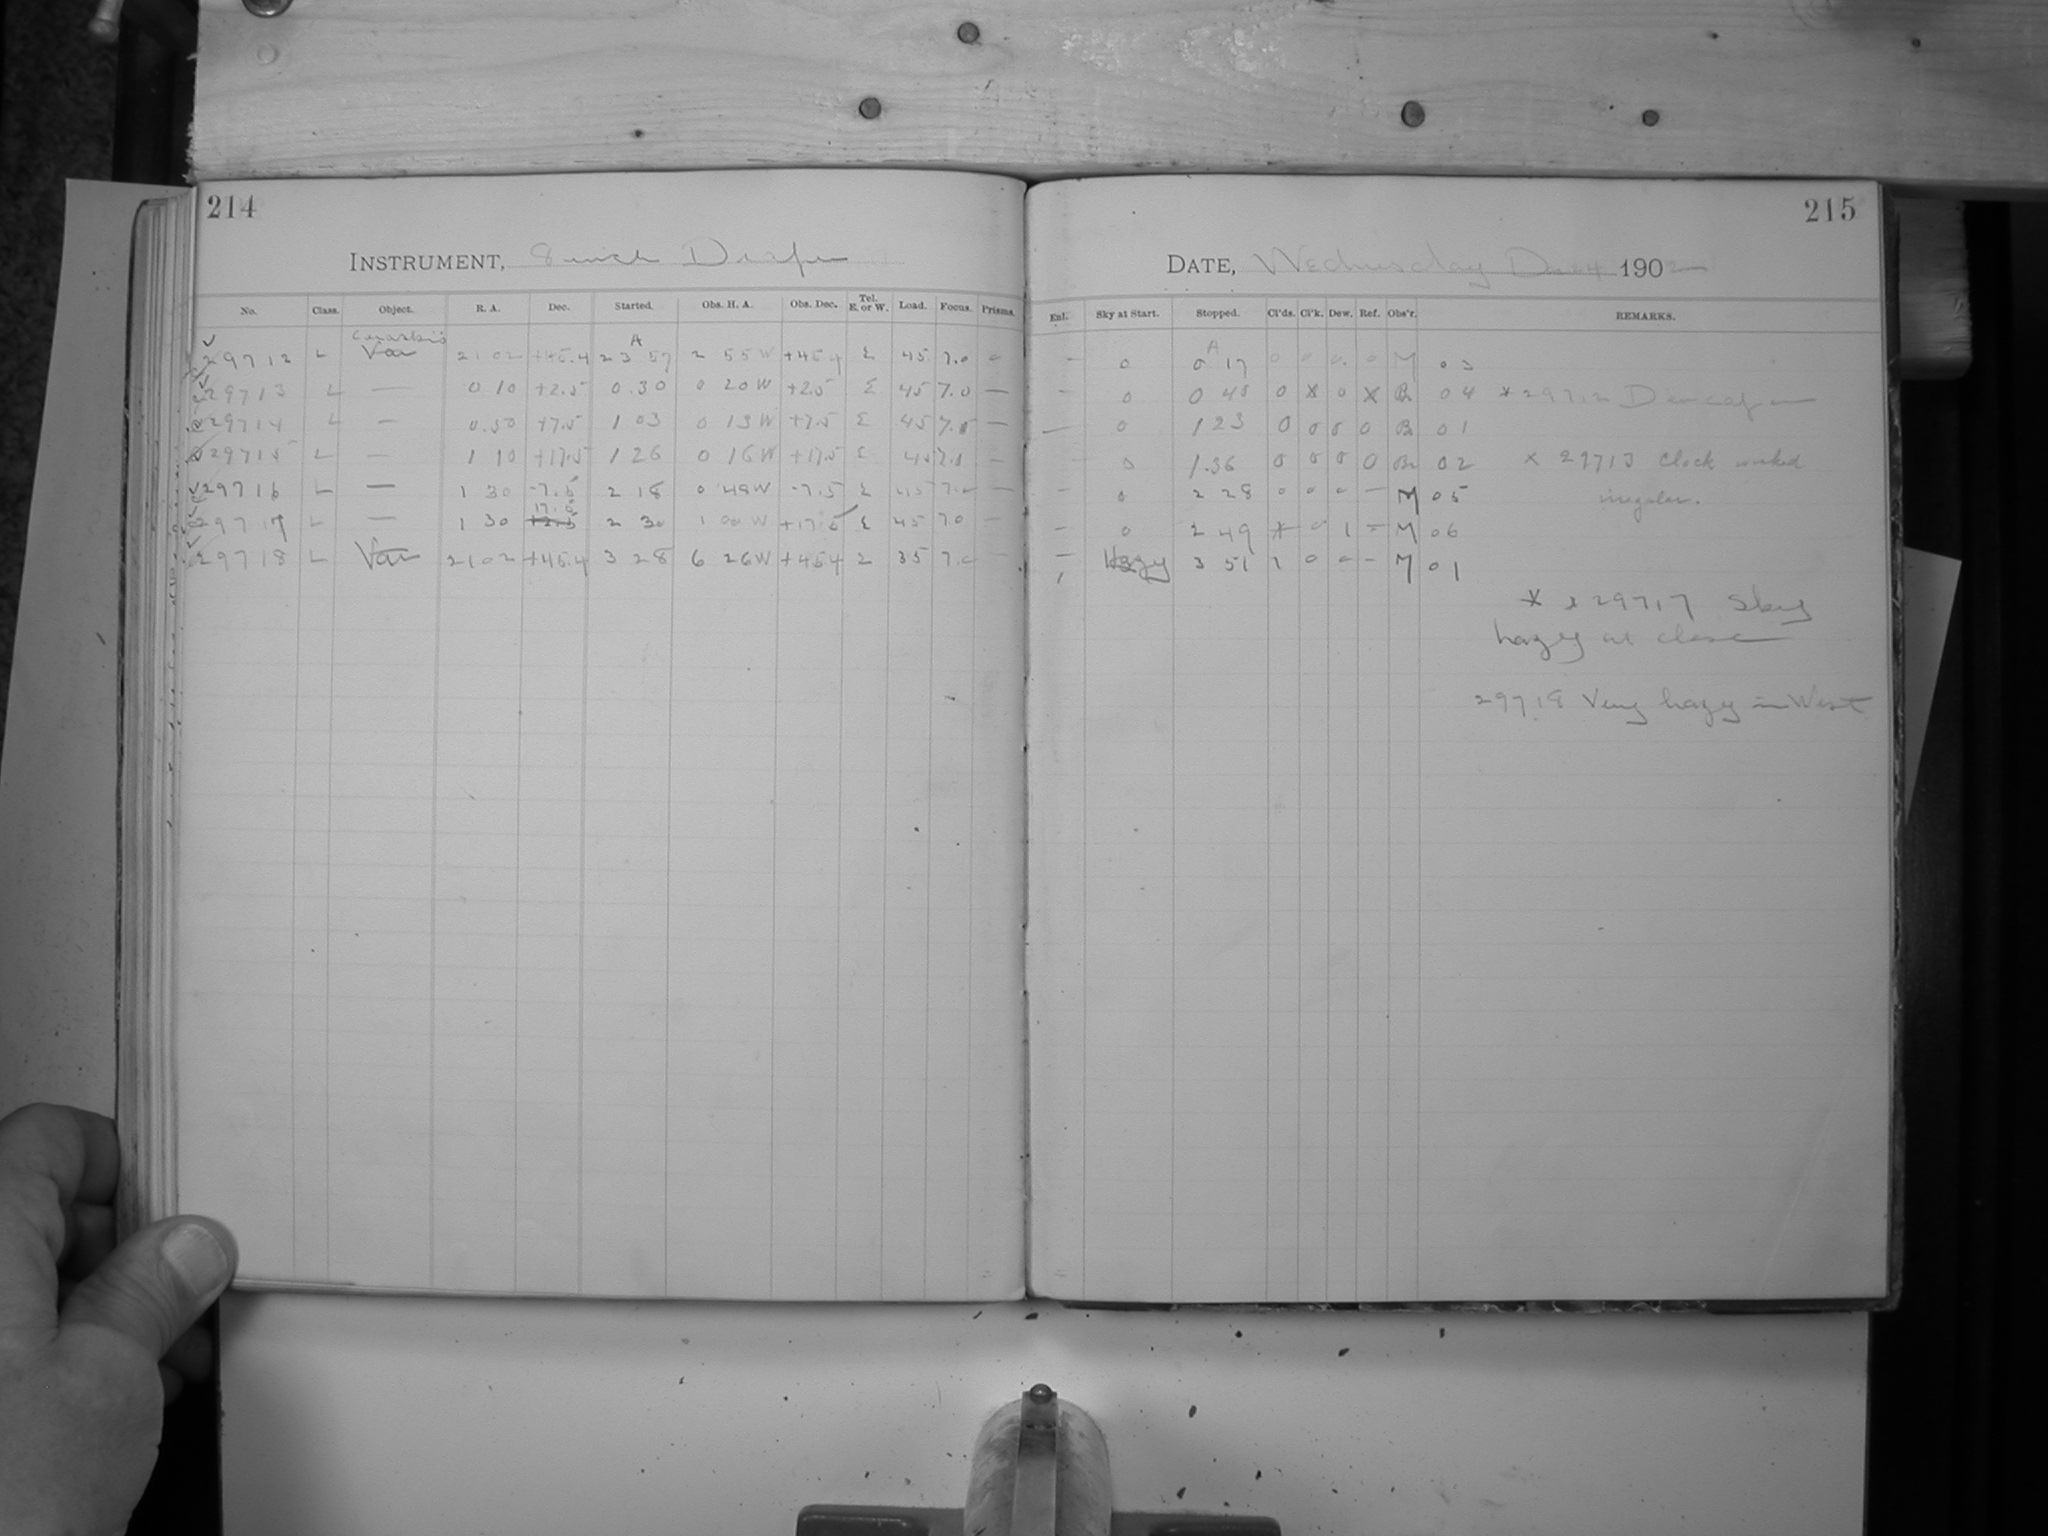 214
INSTRUMENT, 8 inch Draper
No. Class. Object. R. A. Dec. Started. Obs. H. A. Obs. Dec. Tel. E. or W. Load. Focus. Prisms.
A
29712 L Var 21 02 +45.4 23 57 2 55 W +45.4 E 45 7.0 0
29713 L — 0 10 +2.5 0.30 0 20 W +2.5 E 45 7.0 —
29714 L — 0.50 +7.5 1 03 0 13 W +7.5 E 45 7.0 —
29715 L — 1 10 +17.5 1 26 0 16 W +17.5 E 45 7.0 —
29716 L — 1 30 -7.5 2 18 0 48 W -7.5 E 45 7.0 —
17.5
29717 L — 1 30 +2.5 2 30 1 00 W +17.5 E 45 7.0 —
29718 L Var 21 02 +45.4 3 28 6 26 W +45.4 E 35 7.0 —
215
DATE, Wednesday Dec 24 1902
Enl. Sky at Start. Stopped. Cl'ds. Cl'k. Dew. Ref. Obs'r. REMARKS.
A
— 0 0 17 0 0 0 0 M 03
— 0 0 45 0 x 0 x B 04 * 29712
— 0 1 23 0 0 0 0 B 01
0 1.36 0 0 0 0 B 02 x 29713 Clock worked
— 0 2 28 0 0 0 — M 05 irregular.
— 0 2 49 * 0 1 — M 06
— Hazy 3 51 1 0 0 — M 01
* x 29717 Sky
hazy at close
29718 Very hazy in West